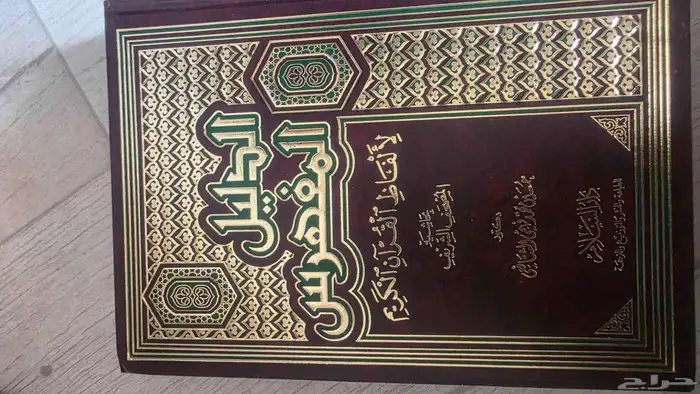 الدليل
المفهرس
لِأَلْفَاظِ الْقُرْآنِ الْكَرِيمِ
بحاشية
المصحف الشريف
دكتور
دار السلام
حراج